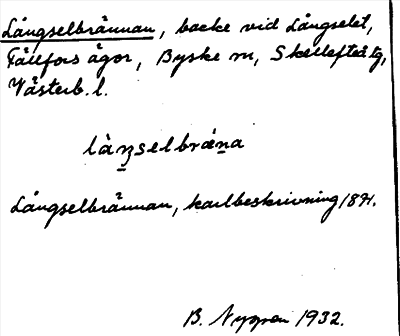 Långselbrännan, backe vid Långselet,
Fällfors ägor, Byske sn, Skellefteå tg,
Västerb. l.
làŋselbrǽna
Långselbrännan, kartbeskrivning 1871.
B. Nygren 1932.